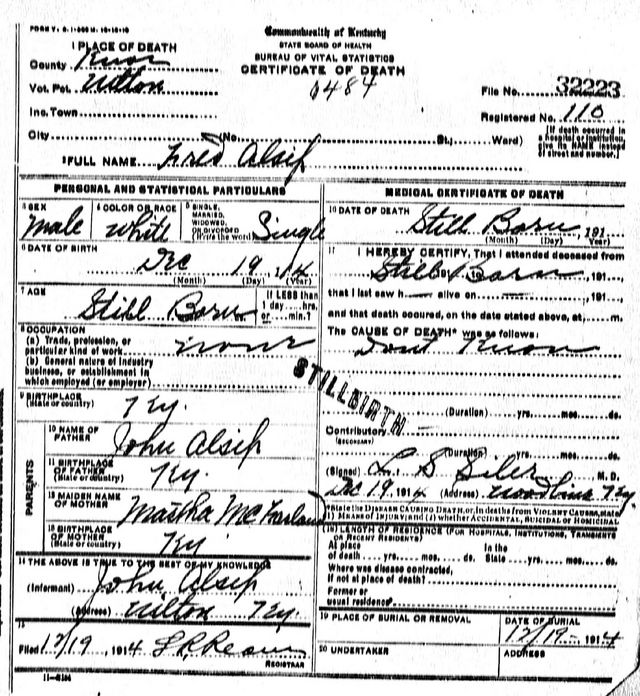 Commonwealth of Kentucky
STATE BOARD OF HEALTH
BUREAU OF VITAL STATISTICS
CERTIFICATE OF DEATH
1 PLACE OF DEATH
County Knox
Vot. Pct.
Inc. Town
City (No. St., Ward)
File No. 32223
Registered No. 110
[If death occurred in a hospital or institution, give its NAME instead of street and number.]
2 FULL NAME Fred Alsip
PERSONAL AND STATISTICAL PARTICULARS
3 SEX Male
4 COLOR OR RACE White
5 SINGLE, MARRIED, WIDOWED, OR DIVORCED (Write the word) Single
6 DATE OF BIRTH
Dec 19 , 1914
(Month) (Day) (Year)
7 AGE Still Born
If LESS than 1 day ....hrs. or ....min.?
8 OCCUPATION
(a) Trade, profession, or particular kind of work none
(b) General nature of industry business, or establishment in which employed (or employer)
9 BIRTHPLACE (State or country) Ky.
PARENTS
10 NAME OF FATHER John Alsip
11 BIRTHPLACE OF FATHER (State or country) Ky.
12 MAIDEN NAME OF MOTHER Martha McFarland
13 BIRTHPLACE OF MOTHER (State or country) Ky
14 THE ABOVE IS TRUE TO THE BEST OF MY KNOWLEDGE
(Informant) John Alsip
(Address) Ky.
15
Filed 12/19, 1914
REGISTRAR
MEDICAL CERTIFICATE OF DEATH
16 DATE OF DEATH Still Born , 191
(Month) (Day) Year
17 I HEREBY CERTIFY, That I attended deceased from
Still Born , 191....,
that I last saw h— alive on — , 191....,
and that death occured, on the date stated above, at ....m.
The CAUSE OF DEATH* was as follows:
Dont Know
STILLBIRTH
(Duration) yrs. mos. ds.
Contributory
(SECONDARY)
(Duration) yrs. mos. ds.
(Signed) L. S Siler M.D.
Dec 19, 1914 (Address) Woodbine Ky.
*State the DISEASE CAUSING DEATH, or, in deaths from VIOLENT CAUSES, state (1) MEANS OF INJURY; and (2) whether ACCIDENTAL, SUICIDAL or HOMICIDAL
(18) LENGTH OF RESIDENCE (FOR HOSPITALS, INSTITUTIONS, TRANSIENTS OR RECENT RESIDENTS)
At place of death yrs. mos. ds. In the State yrs. mos. ds.
Where was disease contracted, If not at place of death?
Former or usual residence
19 PLACE OF BURIAL OR REMOVAL
DATE OF BURIAL
12/19 - 1914
20 UNDERTAKER
ADDRESS